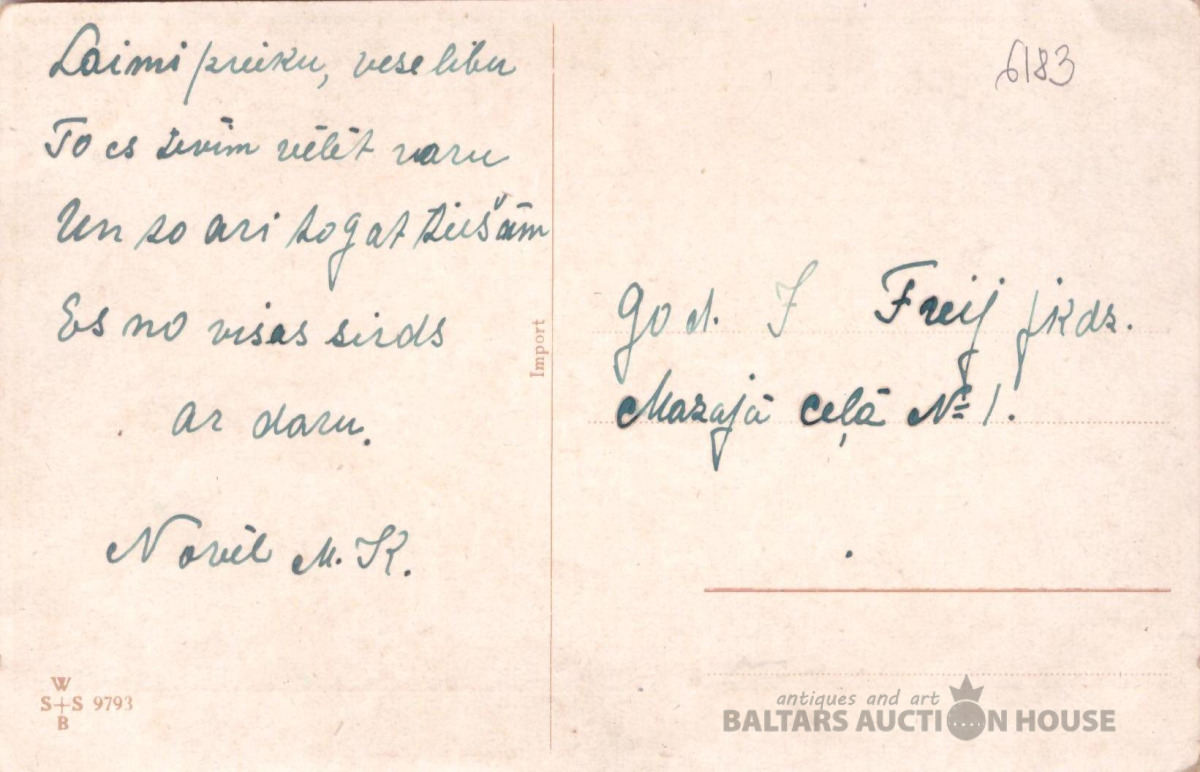 Laimi prieku, veselibu
To es Tevīm vēlēt varu
Un to ari togat tiešām
Es no visas sirds
ar daru.
Novēl M. K.
6183
Import
God. J Freij jkdz.
Mazajā ceļā № 1.
W
S+S 9793
B
antiques and art
BALTARS AUCTION HOUSE